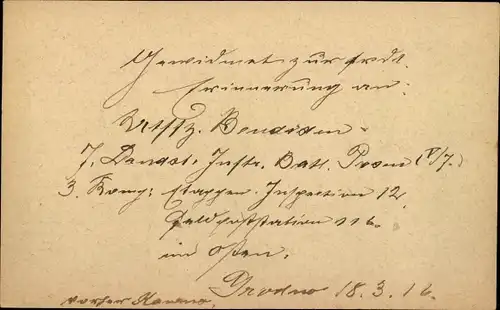 Gewidmet zur frdl.
Erinnerung an:
Utffz. Bendixen
7. Landst. Inftr. Batl. Posen (V/7.)
3. Komp: Etappen-Inspection 12
Feldpoststation 116
im Osten.
Grodno 18.3.16.
vorher Kowno.